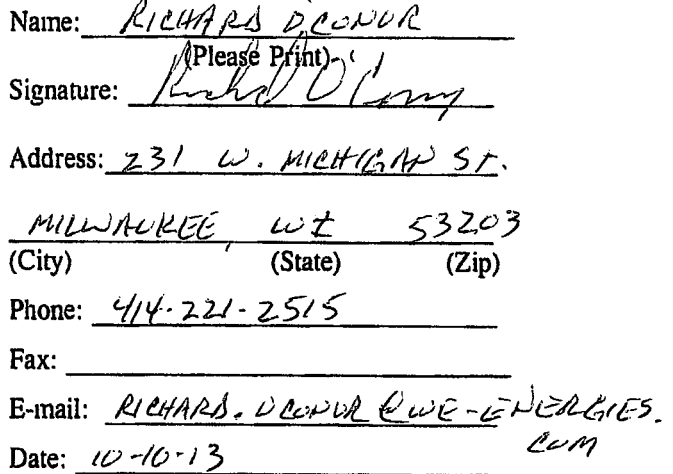 Name: RICHARD O'CONOR
(Please Print)
Signature: Richard O'Conor
Address: 231 W. MICHIGAN ST.
MILWAUKEE, WI 53203
(City) (State) (Zip)
Phone: 414-221-2515
Fax:
E-mail: RICHARD.OCONOR@WE-ENERGIES.
COM
Date: 10-10-13